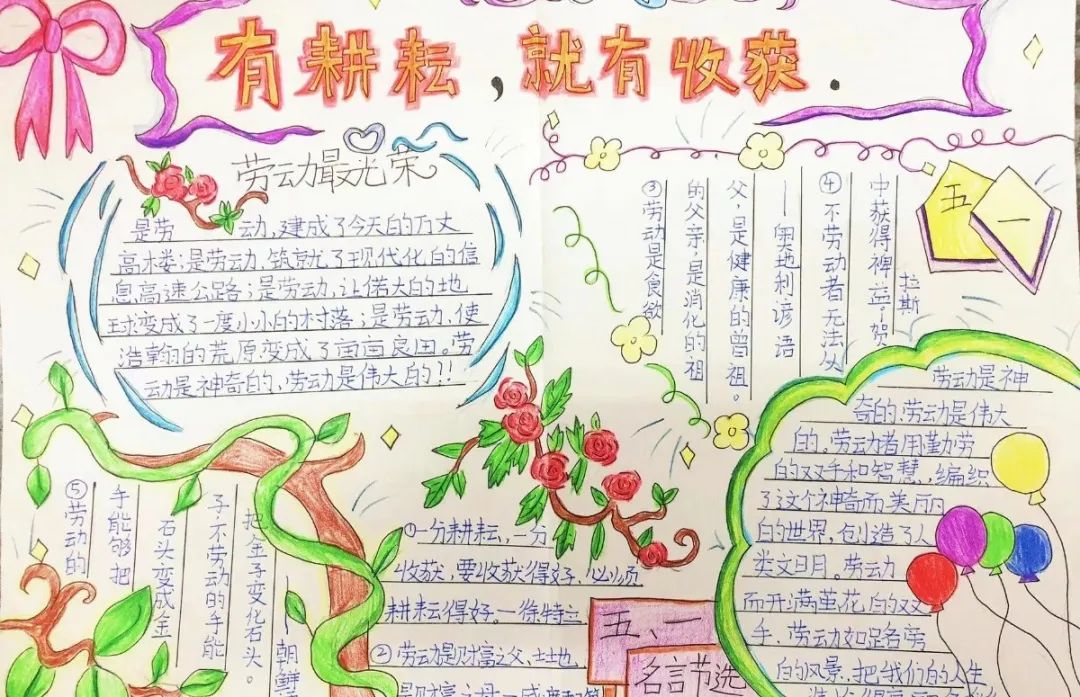 有耕耘，就有收获．
劳动最光荣
是劳动，建成了今天的万丈
高楼；是劳动，筑就了现代化的信
息高速公路；是劳动，让偌大的地
球变成了一度小小的村落；是劳动，使
浩翰的荒原变成了亩亩良田。劳
动是神奇的，劳动是伟大的！！
③劳动是食欲
的父亲，是消化的祖
父，是健康的曾祖。
——奥地利谚语
④不劳动者无法从
中获得裨益。贺
拉斯
五一
⑤劳动的
手能够把
石头变成金
子不劳动的手能
把金子变化石头。
—朝鲜
①一分耕耘，一分
收获，要收获得好，必须
耕耘得好。—徐特立
②劳动是财富之父，土地
是财富之母—威廉和第
五、一
名言节选
劳动是神
奇的，劳动是伟大
的。劳动者用勤劳
的双手和智慧，编织
了这个神奇而美丽
的世界，创造了人
类文明。劳动
而开满茧花的双
手，劳动如路旁
的风景，把我们的人生